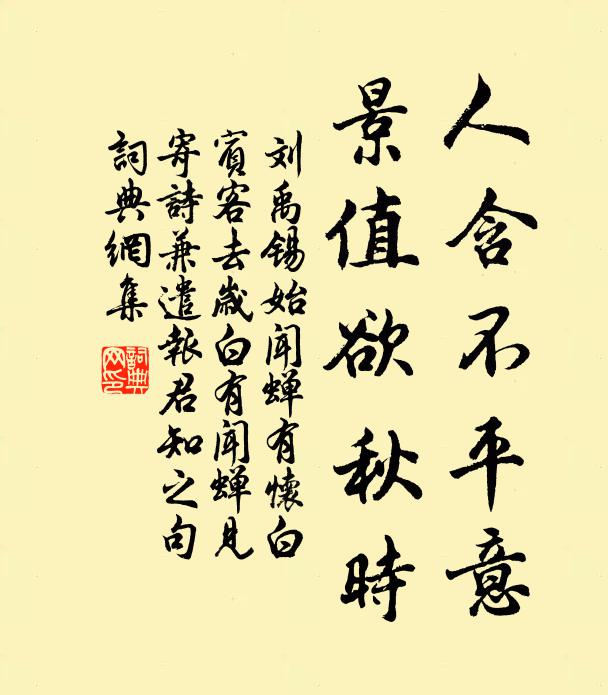 人含不平意
景值欲秋時
刘禹锡始闻蝉有懷白
賓客去歲白有闻蝉見
寄詩兼遣報君知之句
詞典網集
詞典
网印